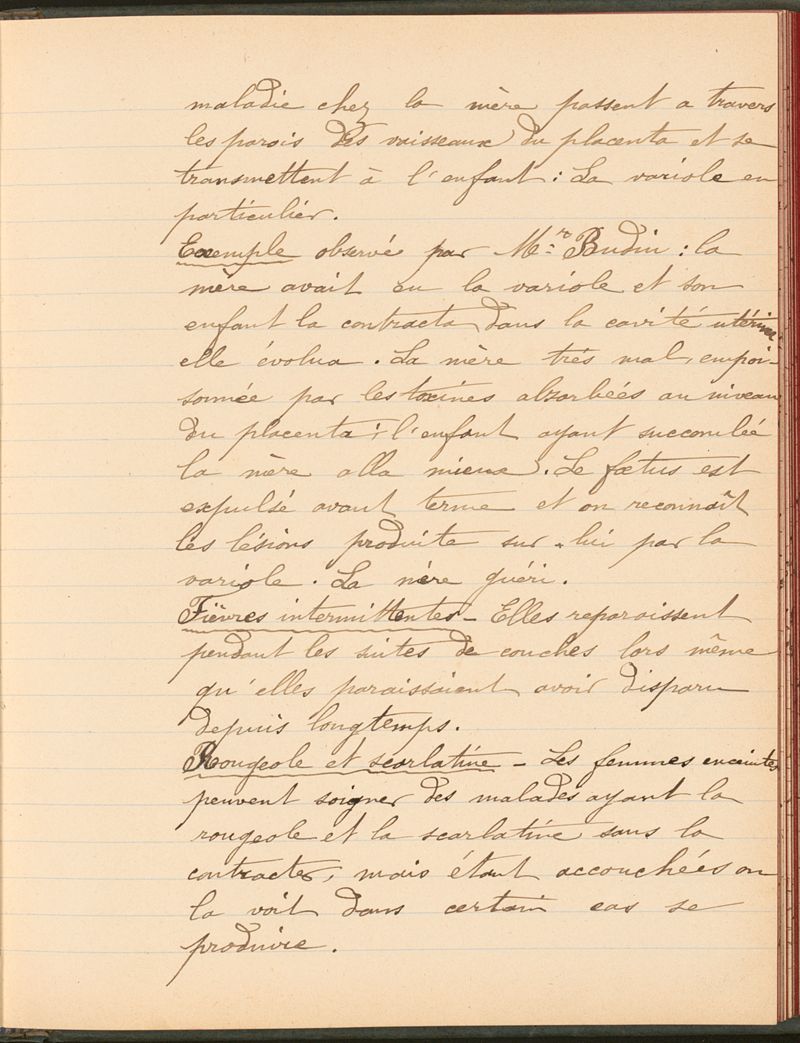 maladie chez la mère passent a travers
les parois des vaisseaux du placenta et se
transmettent à l'enfant : La variole en
particulier.
Exemple observé par Mr. Budin : la
mère avait eu la variole et son
enfant la contracta dans la cavité utérine
elle évolua. La mère très mal, empoi-
sonnée par les toxines absorbées au niveau
du placenta ; l'enfant ayant succombé
la mère alla mieux. Le fœtus est
expulsé avant terme et on reconnaît
les lésions produite sur-lui par la
variole. La mère guéri.
Fièvres intermittentes - Elles reparaissent
pendant les suites de couches lors même
qu'elles paraissaient avoir disparu
depuis longtemps.
Rougeole et scarlatine - Les femmes enceintes
peuvent soigner des malades ayant la
rougeole et la scarlatine sans la
contracter, mais étant accouchées on
la voit dans certain cas se
produire.